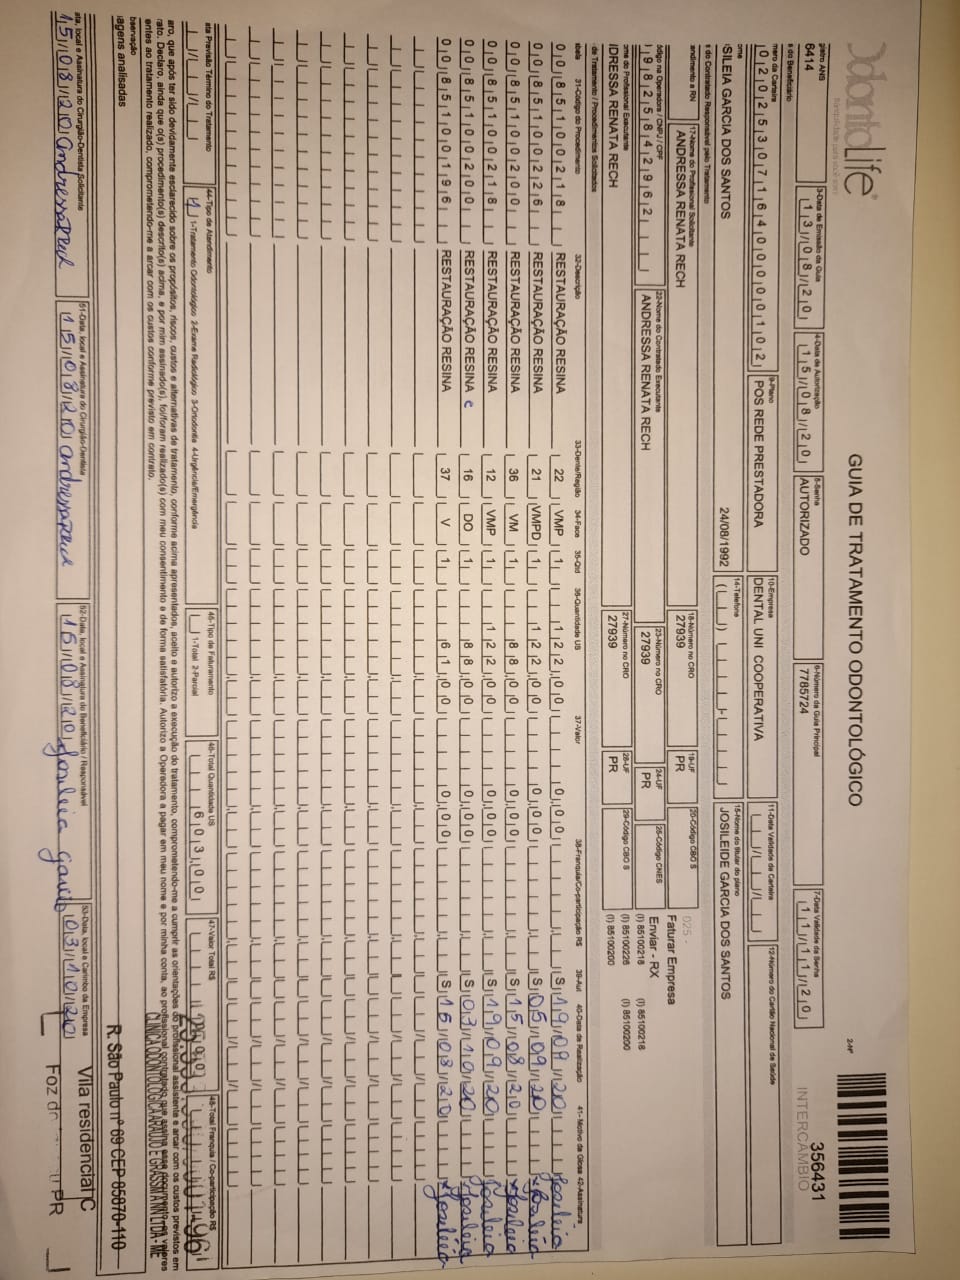 OdontoLife®
GUIA DE TRATAMENTO ODONTOLÓGICO
2-Nº
356431
INTERCÂMBIO
6414
3-Data de Emissão da Guia
13/08/20
4-Data de Autorização
15/08/20
5-Senha
AUTORIZADO
6-Número da Guia Principal
7785724
7-Data Validade da Senha
11/11/20
mero da Carteira
02025307164000000102
9-Plano
POS REDE PRESTADORA
10-Empresa
DENTAL UNI COOPERATIVA
11-Data Validade da Carteira
12-Número do Cartão Nacional de Saúde
SILEIA GARCIA DOS SANTOS
24/08/1992
14-Telefone
15-Nome do titular do plano
JOSILEIDE GARCIA DOS SANTOS
s do Contratado Responsável pelo Tratamento
endimento a RN
17-Nome do Profissional Solicitante
ANDRESSA RENATA RECH
18-Número no CRO
27939
19-UF
PR
20-Código CBO S
025 -
Faturar Empresa
ódigo na Operadora / CNPJ / CPF
19825842962
22-Nome do Contratado Executante
ANDRESSA RENATA RECH
23-Número no CRO
27939
24-UF
PR
25-Código CNES
Enviar - RX
(I) 85100218 (I) 85100218
(I) 85100226 (I) 85100200
(I) 85100200
ome do Profissional Executante
DRESSA RENATA RECH
27-Número no CRO
27939
28-UF
PR
29-Código CBO S
de Tratamento / Procedimentos Solicitados
abela 31-Código do Procedimento 32-Descrição 33-Dente/Região 34-Face 35-Qtd 36-Quantidade US 37-Valor 38-Franquia/Co-participação R$ 39-Aut 40-Data de Realização 41-Motivo da Glosa 42-Assinatura
00 85100218 RESTAURAÇÃO RESINA 22 VMP 1 122,00 0,00 S 19/09/20 Josileia
00 85100226 RESTAURAÇÃO RESINA 21 VMPD 1 122,00 0,00 S 05/09/20 Josileia
00 85100200 RESTAURAÇÃO RESINA 36 VM 1 88,00 0,00 S 15/08/20 Josileia
00 85100218 RESTAURAÇÃO RESINA 12 VMP 1 122,00 0,00 S 19/09/20 Josileia
00 85100200 RESTAURAÇÃO RESINA 16 DO 1 88,00 0,00 S 03/10/20 Josileia
00 85100196 RESTAURAÇÃO RESINA 37 V 1 61,00 0,00 S 15/08/20 Josileia
ata Previsão Término do Tratamento
44-Tipo de Atendimento
1 1-Tratamento Odontológico 2-Exame Radiológico 3-Ortodontia 4-Urgência/Emergência
45-Tipo de Faturamento
1-Total 2-Parcial
46-Total Quantidade US
603,00
47-Valor Total R$
48-Total Franquia / Co-participação R$
aro, que após ter sido devidamente esclarecido sobre os propósitos, riscos, custos e alternativas de tratamento, conforme acima apresentados, aceito e autorizo a execução do tratamento, comprometendo-me a cumprir as orientações do profissional assistente e arcar com os custos previstos em
rato. Declaro, ainda que o(s) procedimento(s) descrito(s) acima, e por mim assinado(s), foi/foram realizado(s) com meu consentimento e de forma satisfatória. Autorizo a Operadora a pagar em meu nome e por minha conta, ao profissional contratado que assina esse documento, os valores
entes ao tratamento realizado, comprometendo-me a arcar com os custos conforme previsto em contrato.
CLINICA ODONTOLOGICA ARAUJO E GRASSMANN LTDA - ME
bservação
agens analisadas
R. São Paulo nº 69 CEP 85870-110
ata, local e Assinatura do Cirurgião-Dentista Solicitante
15/08/20 Andressa Rech
51-Data, local e Assinatura do Cirurgião-Dentista
15/08/20 Andressa Rech
52-Data, local e Assinatura do Beneficiário / Responsável
15/08/20 Josileia Garcia
53-Data, local e Carimbo da Empresa
03/10/20
Vila residencial C
Foz do PR